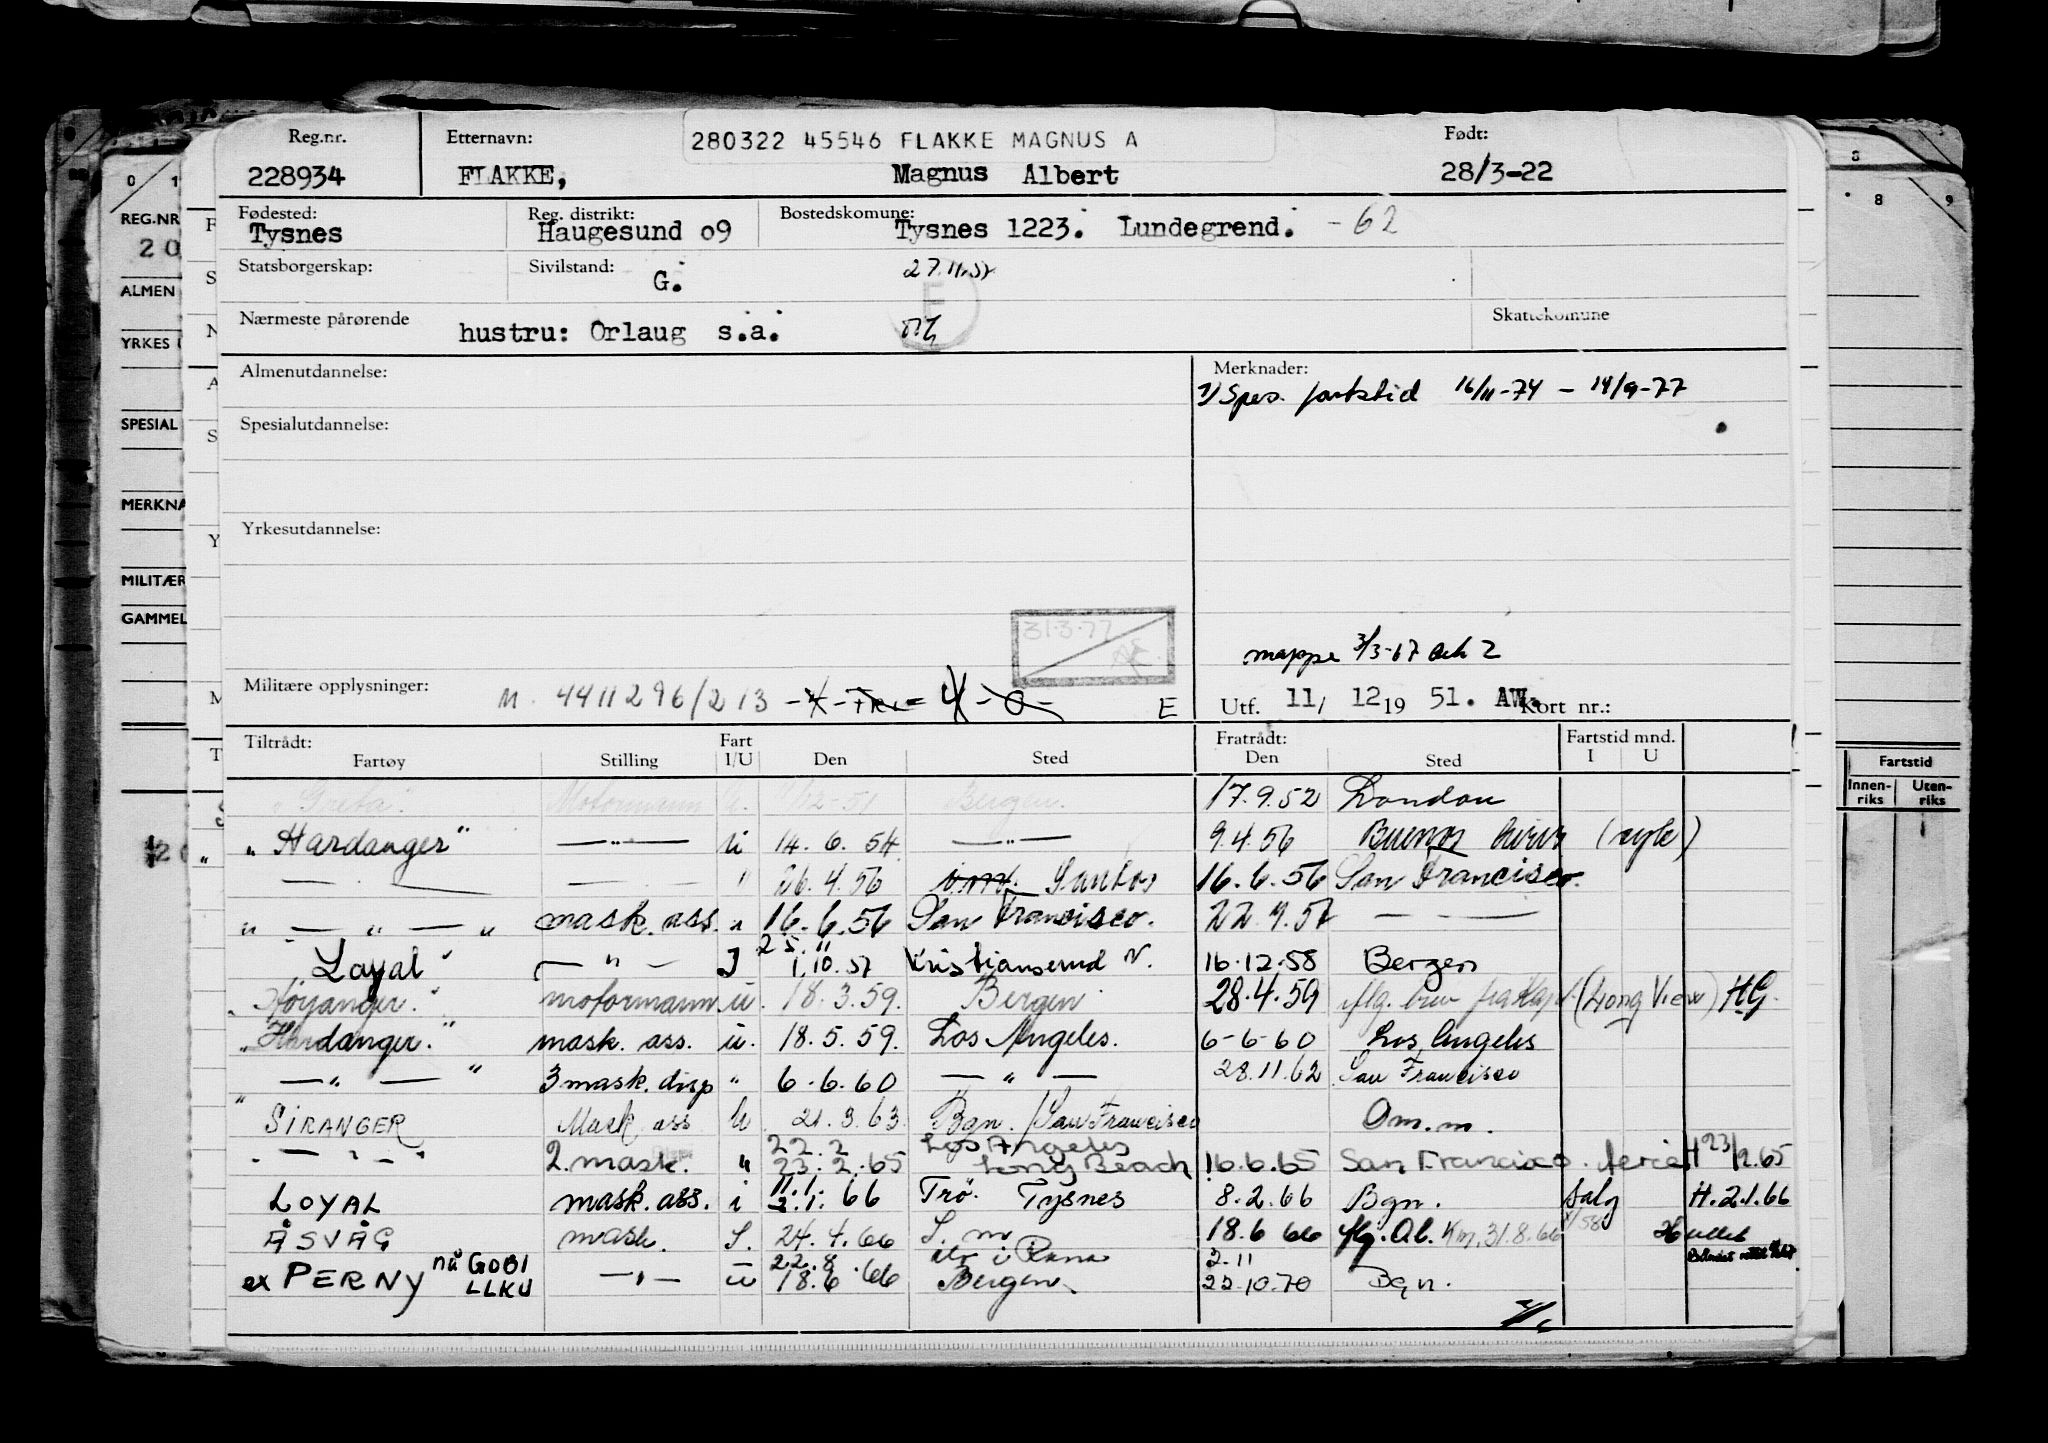 Reg.nr. Etternavn: 280322 45546 FLAKKE MAGNUS A Født:
228934 FLAKKE, Magnus Albert 28/3-22
Fødested: Reg. distrikt: Bostedskomune:
Tysnes Haugesund 09 Tysnes 1223. Lundegrend. - 62
Statsborgerskap: Sivilstand: G. 27.11.57
Nærmeste pårørende hustru: Orlaug s.a. E Skattekomune
Almenutdannelse: Merknader:
1) Spes. fartstid 16/11-74 - 14/9-77
Spesialutdannelse:
Yrkesutdannelse:
31.3.77
mappe 3/3-67 Ark 2
Militære opplysninger: M. 4411296/213 E Utf. 11/ 12 19 51. AW. Kort nr.:
Tiltrådt: Fart Fratrådt: Fartstid mnd.
Fartøy Stilling I/U Den Sted Den Sted I U
"Greta" Motormann u. 12-51 Bergen. 17.9.52 London
"Hardanger" —"— u 14.6.54. —"— 9.4.56 Buenos Aires (syk)
— — — — " 26.4.56 Santos 16.6.56 San Francisco.
" — " — " mask. ass. " 16.6.56 San Francisco. 22.9.57 — " —
"Loyal" — " — I 25.11 1.10.57 Kristiansund N. 16.12.58 Bergen
"Høyanger." motormann u. 18.3.59. Bergen 28.4.59 flg. brev fra (Long View) HG.
"Hardanger." mask. ass. u. 18.5.59. Los Angeles. 6-6-60 Los Angeles
— " — " 3 mask. disp " 6.6.60 — " — 28.11.62 San Francisco
"SIRANGER Mask ass u 21.3.63 Bgn. /San Francisco Om.m.
" — " — " 2. mask. " 22.2 23.2.65 Los Angeles Long Beach 16.6.65 San Francisco. ferie H 23/12.65
LOYAL mask. ass. i 11.1. 3.1. 66 Trö. Tysnes 8.2.66 Bgn. salg H.2.1.66
ÅSVÅG mask. S. 24.4.66 S. m 18.6 66 flg. Ab. Km. 31.8.66
ex PERNY nå GOBI LLKU —"— u 22.8. 18.6.66 i Rana Bergen 2.11 22.10.70 Bgn.
REG.NR
20
ALMEN
YRKES
SPESIAL
MERKNA
MILITÆR
GAMMEL
Fartstid
Innen-riks Uten-riks